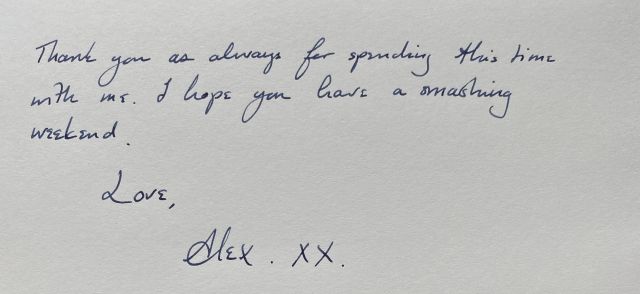 Thank you as always for spending this time
with me. I hope you have a smashing
weekend.
Love,
Alex. XX.